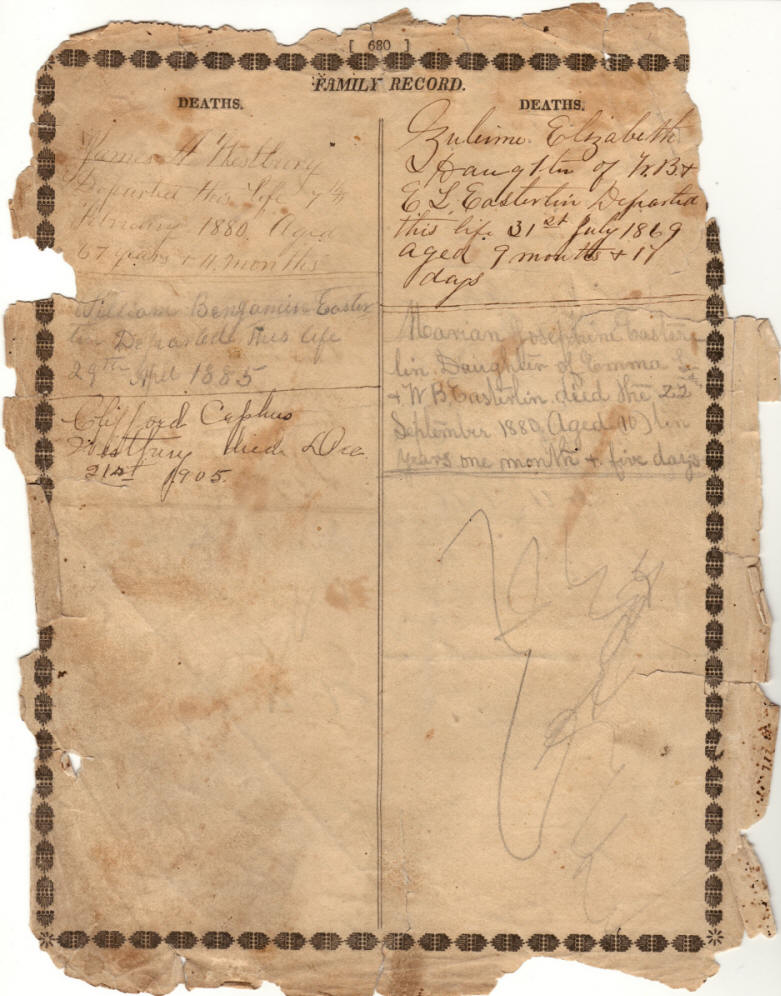 [ 680 ]
FAMILY RECORD.
DEATHS.
James A Westbury
Departed this life 7th
February 1880. Aged
67 years + 11 months
William Benjamin Easter
lin Departed this life
29th April 1885
Clifford Cephus
Westbury died Dec
21st 1905.
DEATHS.
Zulieme Elizabeth
Daughter of W.B. +
E L. Easterlin Departed
this life 31st July 1869
aged 9 months + 17
days
Marian Josephine Easter
lin Daughter of Emma L
+ W B. Easterlin died the 22
September 1880 Aged 10) ten
years one month + five days